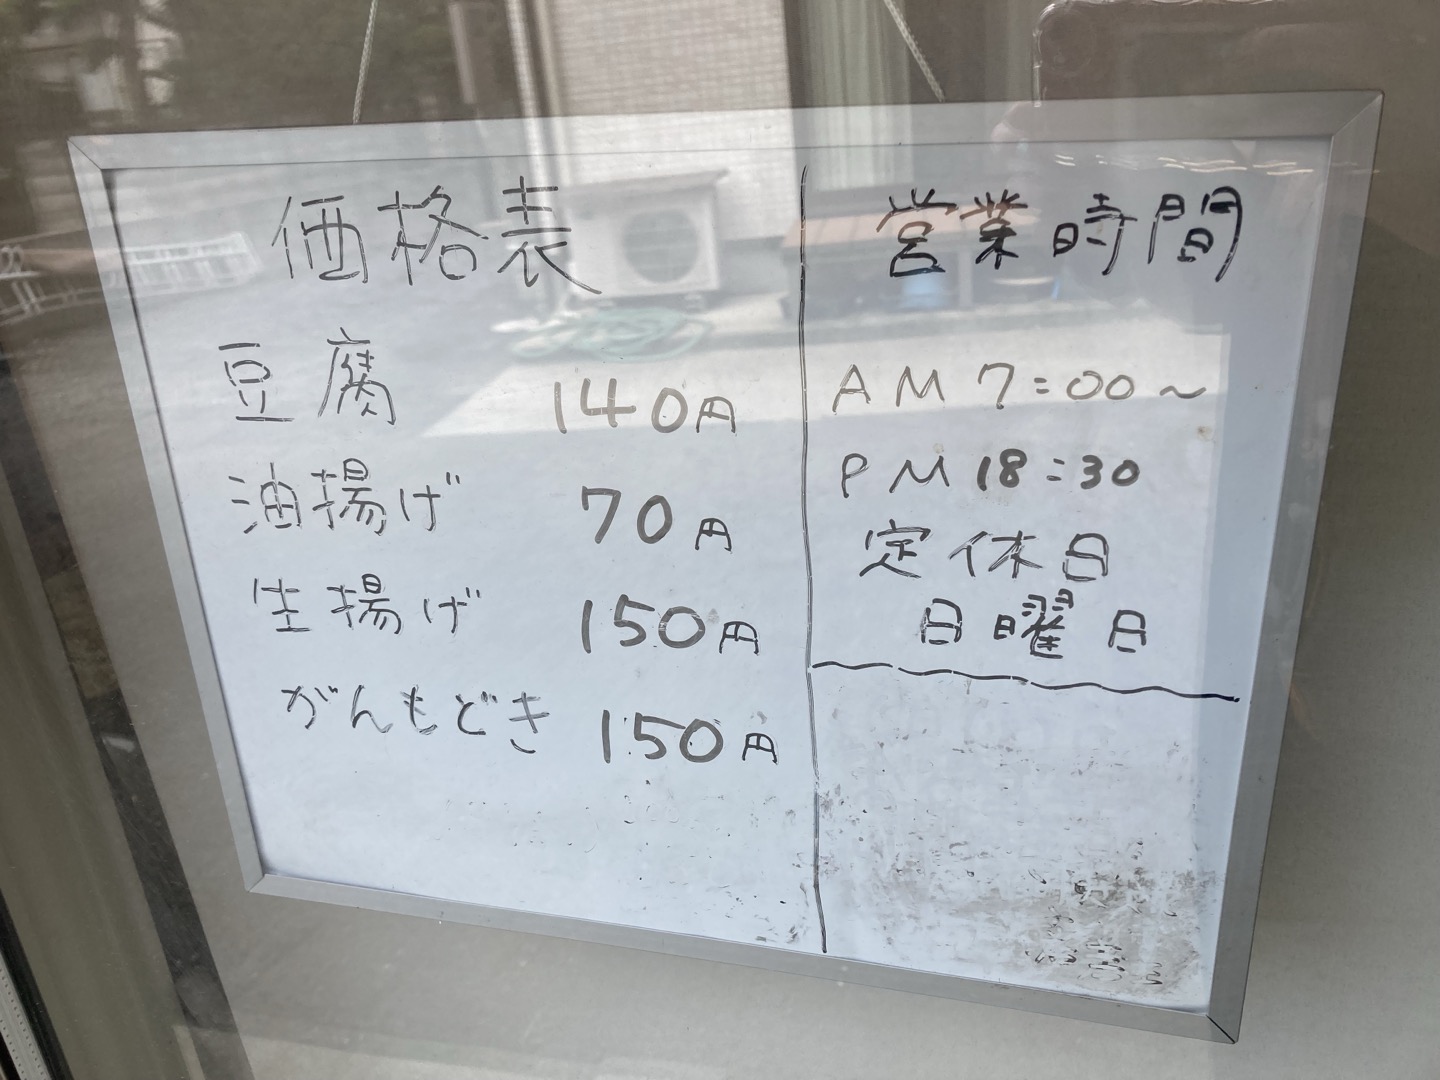 価格表
豆腐 140円
油揚げ 70円
生揚げ 150円
がんもどき 150円
営業時間
AM 7:00~
PM 18:30
定休日
日曜日